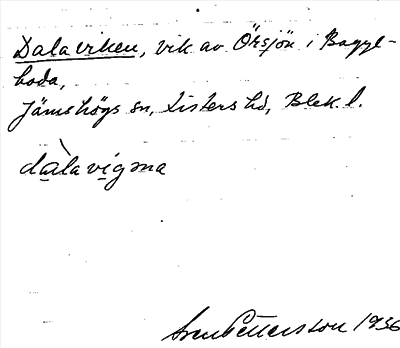 Dalaviken, vik av Örsjön i Baggl-
boda,
Jämshögs sn, Listers hd, Blek. l.
dàlavigəna
Sven Pettersson 1936